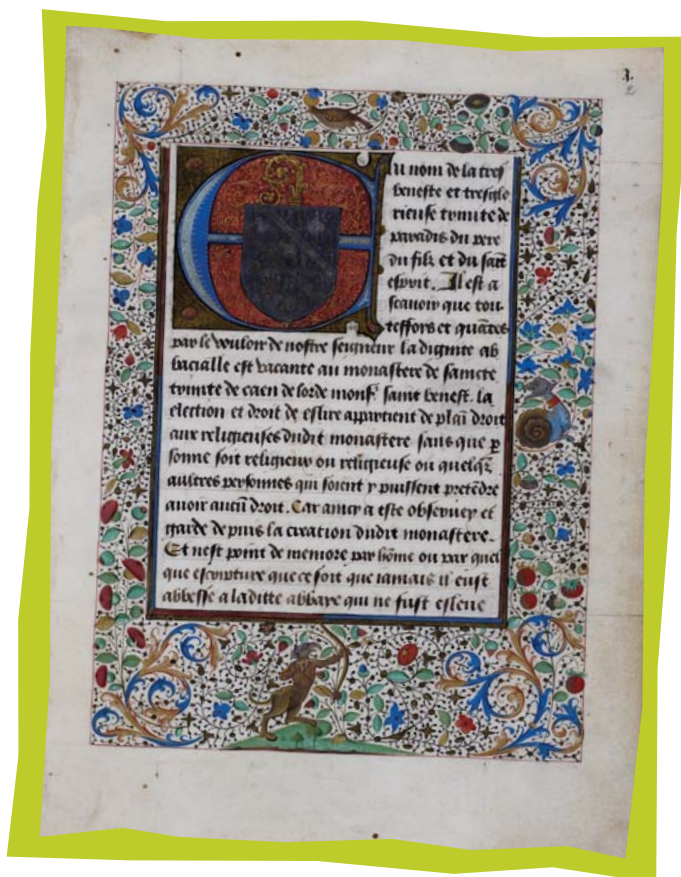 3.
2
EN nom de la tres
beneste et tresglo
rieuse trinite de
paradis du pere
du filz et du sait
esperit. Il est a
scauoir que tou
teffois et quantes
par le vouloir de nostre seigneur la dignite ab
bacialle est vacante au monastere de saincte
trinite de caen de lorde monsr saint benest. la
election et droit de eslire appartient de plain droit
aux religieuses dudit monastere sans que p
sonne soit religieux ou religieuse ou quelqz
aultres personnes qui soient y puissent pretendre
auoir aucun droit. Car ainsy a este obseruey et
garde depuis la creation dudit monastere.
Et nest point de memore par home ou par quel
que escripture que ce soit que iamais il eust
abbesse a laditte abbaye qui ne fust eslue